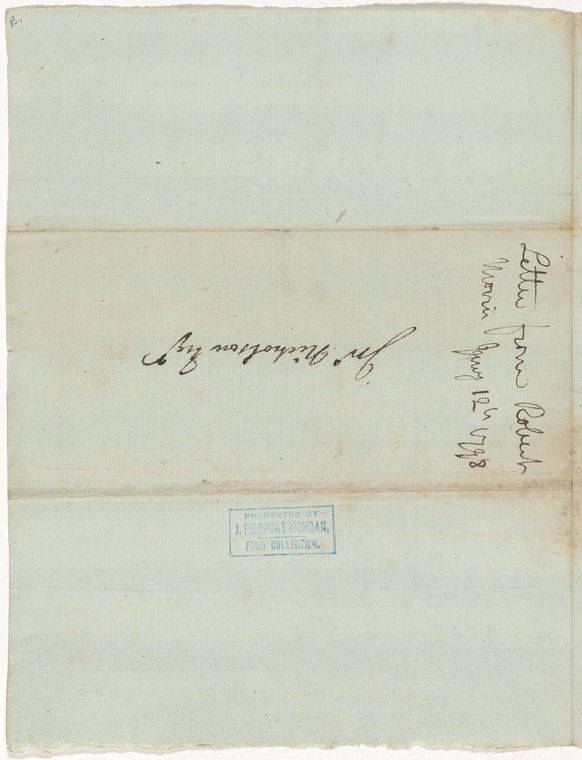 B.
Letter from Robert
Morris Jany 12th 1798
Jno Nicholson Esqr
PRESENTED BY
J. PIERPONT MORGAN,
FORD COLLECTION.